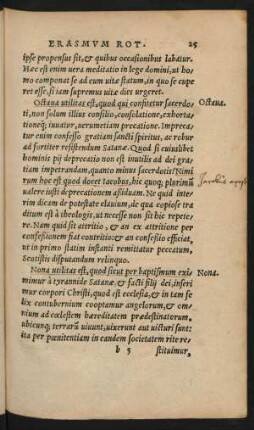 ERASMVM ROT. 25
ipse propensus sit, & quibus occasionibus labatur.
Hæc est enim uera meditatio in lege domini, ut ho
mo componat se ad eum uitæ statum, in quo se cupe
ret esse, si iam supremus uitæ dies urgeret.
Octaua utilitas est, quod qui confitetur sacerdo- Octaua.
ti, non solum illius consilio, consolatione, exhorta-
tioneq́; iuuatur, uerumetiam precatione. Impreca-
tur enim confesso gratiam sancti spiritus, ac robur
ad fortiter resistendum Satanæ. Quod si cuiuslibet
hominis pij deprecatio non est inutilis ad dei gra-
tiam impetrandam, quanto minus sacerdotis? Nimi
rum hoc est quod docet Iacobus, hic quoq; plurimũ
ualere iusti deprecationem assiduam. Ne quid inte-
rim dicam de potestate clauium, de qua copiose tra
ditum est à theologis, ut necesse non sit hic repete-
re. Nam quid sit attritio, & an ex attritione per
confessionem fiat contritio: & an confessio efficiat,
ut in primo statim instanti remittatur peccatum,
Scotistis disputandum relinquo.
Nona utilitas est, quod sicut per baptismum exi- Nona.
mimur à tyrannide Satanæ, & facti filij dei, inseri
mur corpori Christi, quod est ecclesia, & in tam fe
lix contubernium cooptamur angelorum, & om-
nium ad cœlestem hæreditatem prædestinatorum,
ubicunq; terrarũ uiuunt, uixerunt aut uicturi sunt:
ita per pœnitentiam in eandem societatem rite re-
b 5 stituimur,